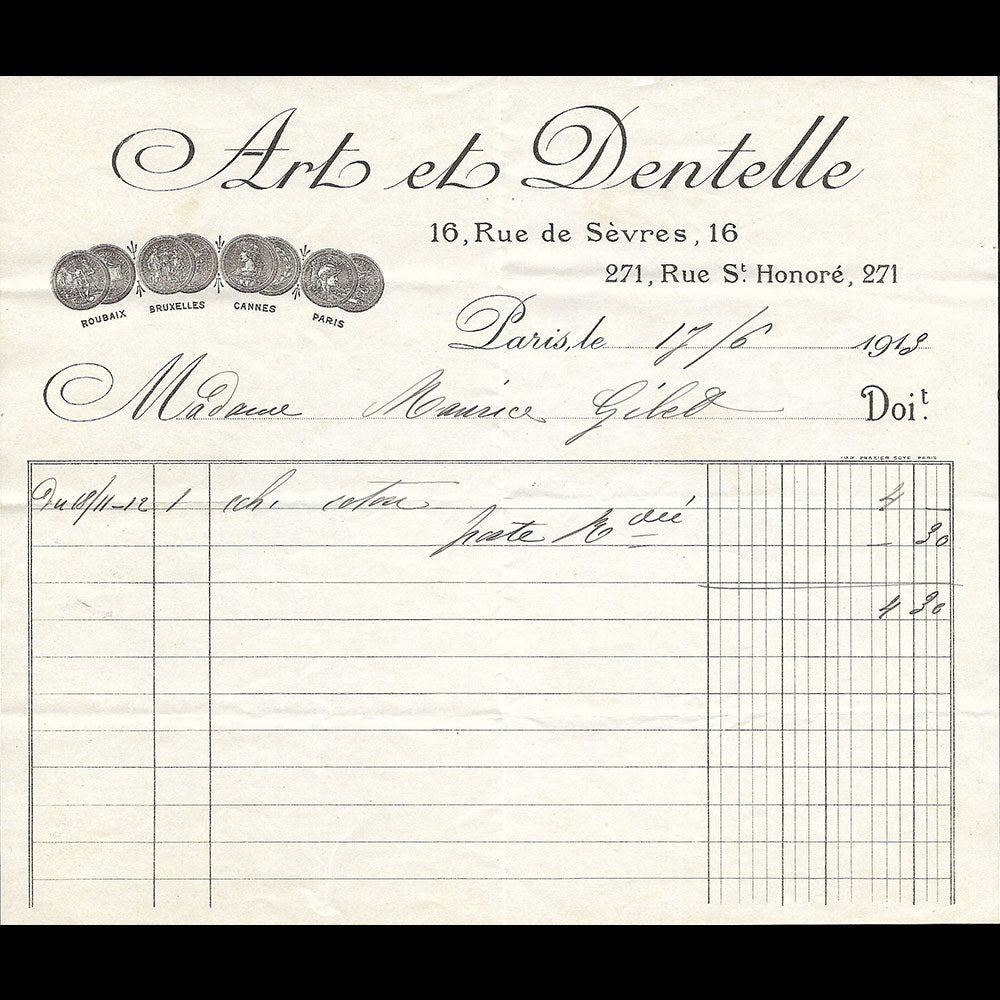 Art et Dentelle
16, Rue de Sèvres, 16
271, Rue St. Honoré, 271
ROUBAIX BRUXELLES CANNES PARIS
Paris, le 17/6 1913
Madame Maurice Gibet Doit.
IMP. FRAZIER-SOYE. PARIS
Du 18/11-12 1 ech. coton 4
poste 30
4 30